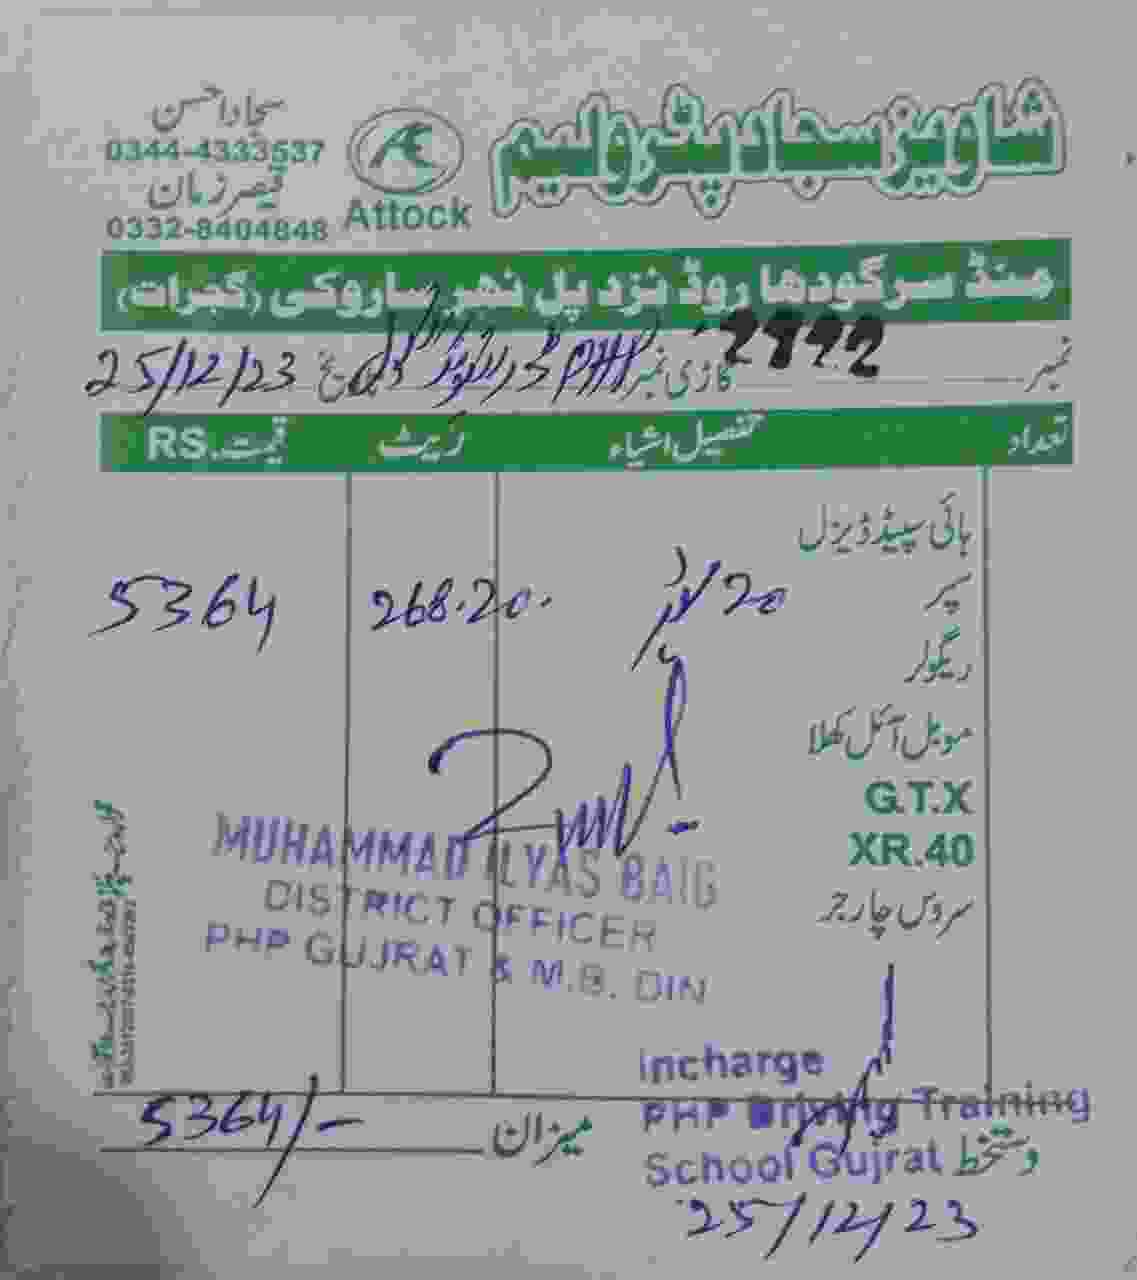 شاویز سجاد پٹرولیم
Attock
سجاد احسن
0344-4333537
قیصر زمان
0332-8404848
منڈ سرگودھا روڈ نزد پل نہر ساروکی (گجرات)
نمبر 2892 گاڑی نمبر PHP ڈرائیونگ سکول تاریخ 25/12/23
تعداد تفصیل اشیاء ریٹ قیمت RS.
ہائی سپیڈ ڈیزل
سپر 20 لیٹر 268.20 5364
ریگولر
موبل آئل کھلا
G.T.X
XR.40
سروس چارجز
MUHAMMAD ILYAS BAIG
DISTRICT OFFICER
PHP GUJRAT & M.B. DIN
میزان 5364/-
Incharge
PHP Driving Training
School Gujrat
دستخط
25/12/23